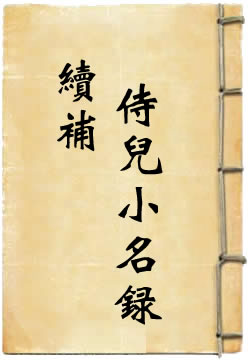 侍兒小名録
續補